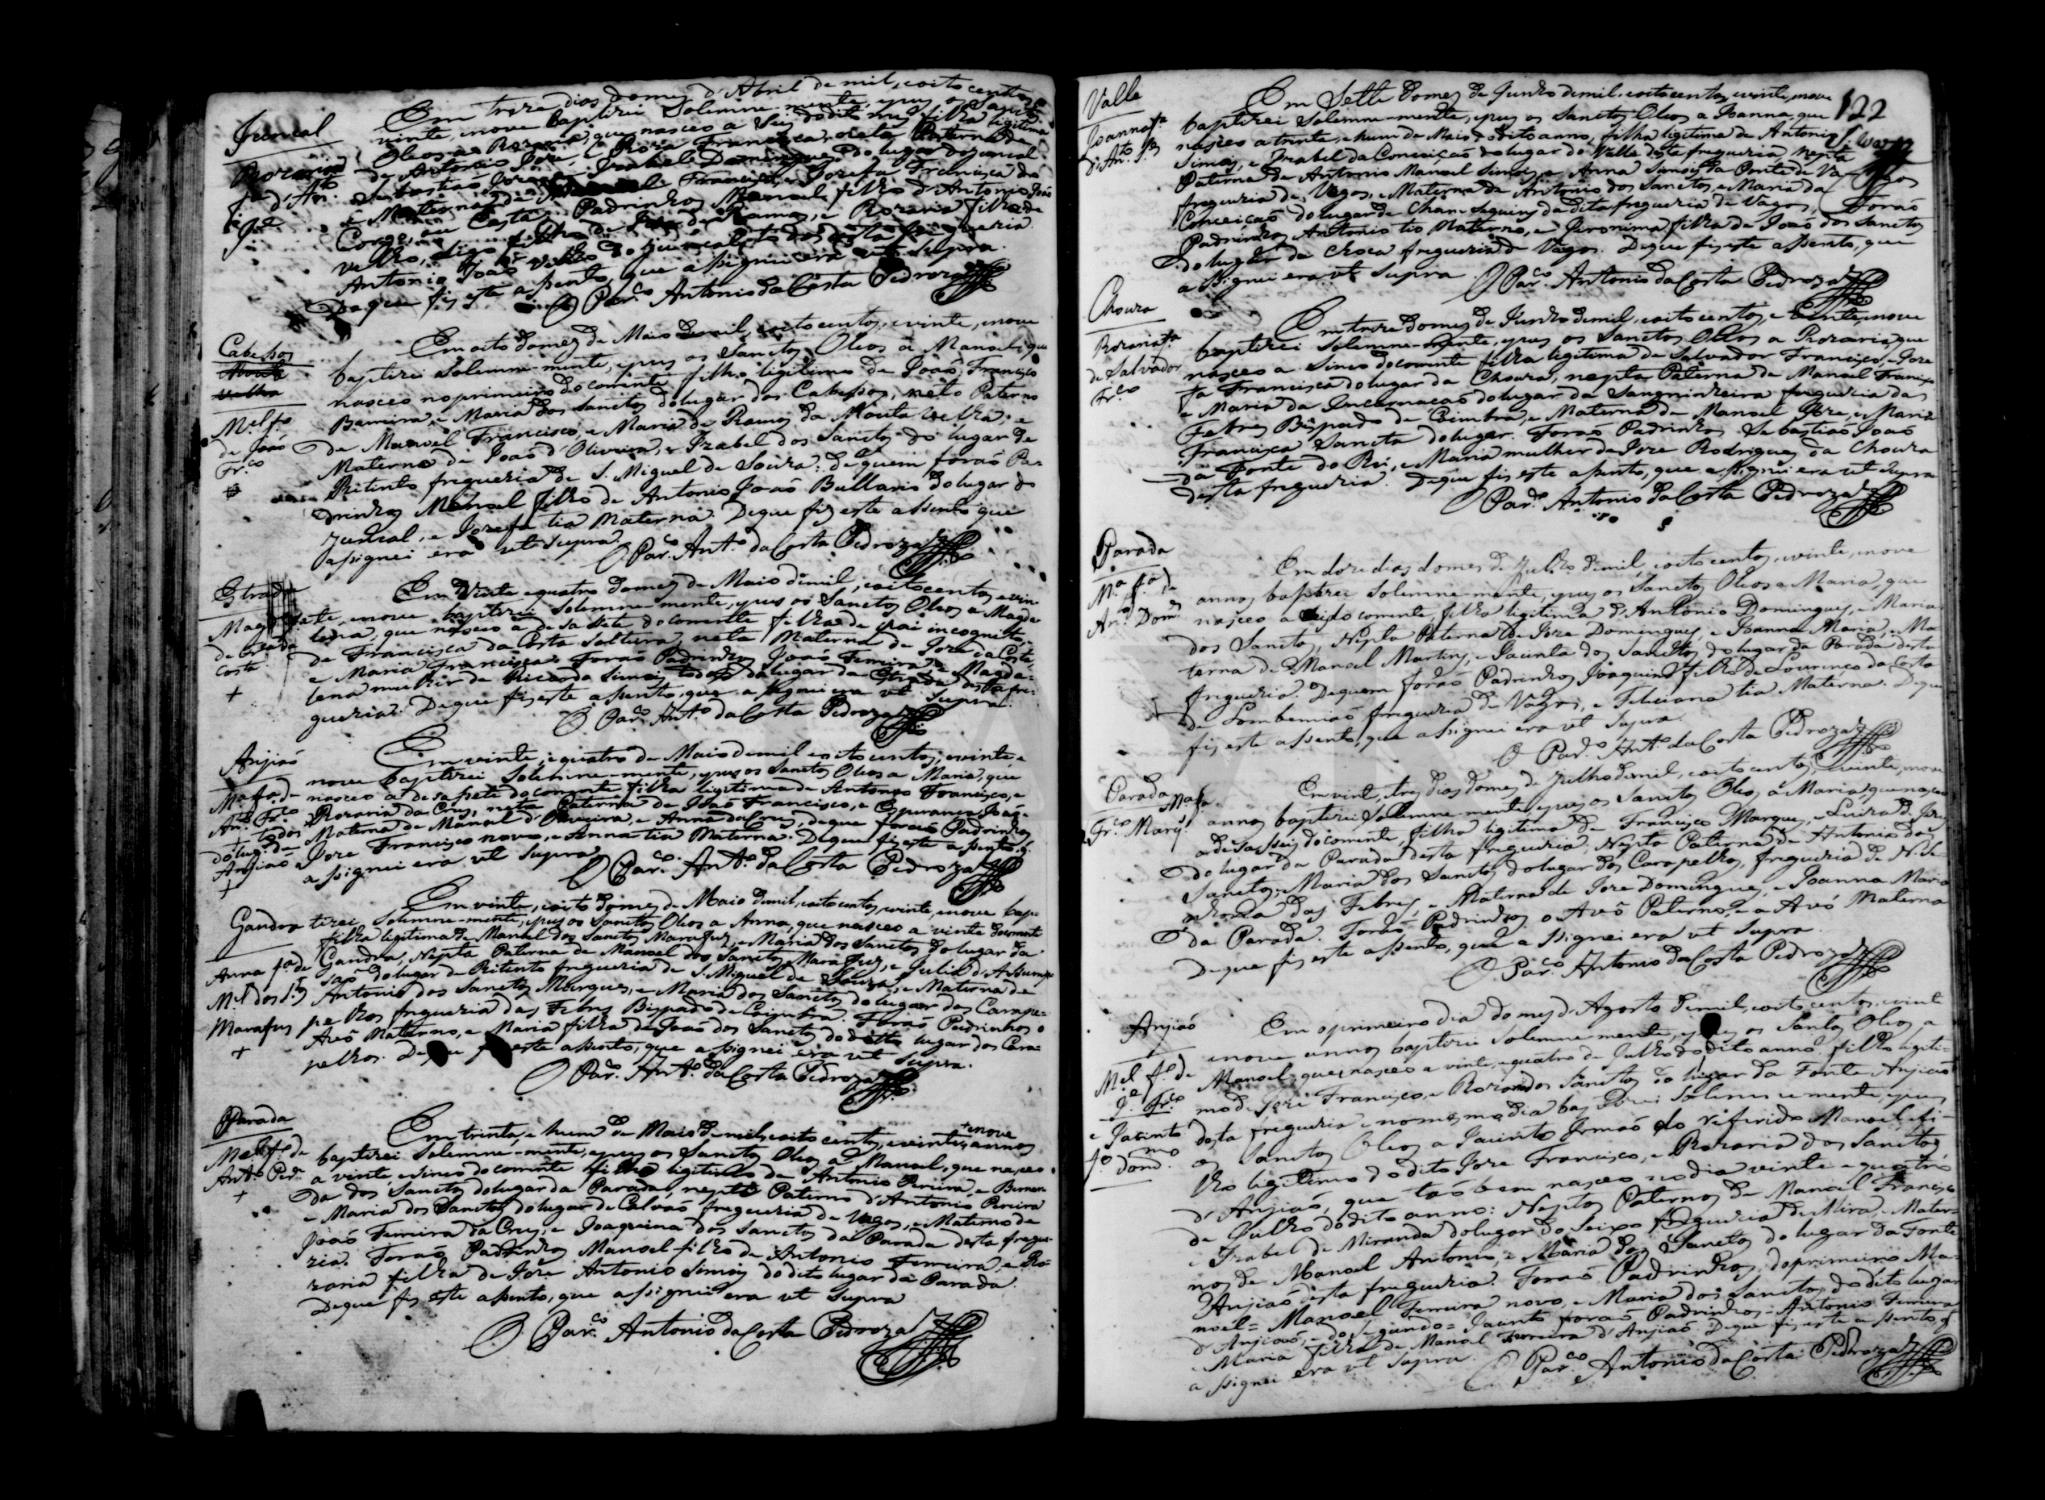 Juncal
Rozaria
fª d'Antº
Jzé
Em treze dias do mes d'Abril de mil, e oito centos
vinte, e nove baptizei solemne-mente, e pus os Sanctos
Oleos a Rozaria, que nasceo a seis do dito mes filha legitima
de Antonio Joze, e Roza Francisca, neta Paterna de
Sebastião Jorge, e Izabel Domingues do lugar do Juncal
e Materna de Francisco, e Jozefa Francisca do
Padrinhos Manoel filho d'Antonio João
velho, Ramos, e Rozaria filha de
Antonio João velho do Juncal todos desta freguezia
De que fiz este assento, que assignei era ut supra.
O Parº Antonio da Costa Pedroza
Cabessos
Mel fº
de João
Frcº
Em oito do mes de Maio de mil, e oito centos, e vinte, e nove
baptizei solemne-mente, e pus os Sanctos Oleos a Manoel, que
nasceo no primeiro do corrente filho legitimo de João Francisco
Barreira, e Maria dos Sanctos do lugar dos Cabessos, neto Paterno
de Manoel Francisco, e Maria de Ramos da Monte velha, e
Materno de João d'Oliveira, e Izabel dos Sanctos do lugar de
Ritinto freguezia de S. Miguel de Soúza: de quem forão Pa-
drinhos Manoel filho de Antonio João Bulhario do lugar do
Juncal, e Jozefa tia Materna. De que fiz este assento que
assignei era ut supra.
O Parº Antº da Costa Pedroza
Estrada
Mag
de Francª da
Costa
Em vinte e quatro do mes de Maio de mil, e oito centos e vin-
te, e nove baptizei solemne-mente, e pus os Sanctos Oleos a Magda-
lena, que nasceo a desasete do corrente filha de pai incognito
de Francisca da Costa solteira, neta Materna de Joze da Costa,
e Maria Francisca: Forão Padrinhos João Ferreira, e Magda-
lena mulher de Ricardo Simois todos do lugar da Estrada desta fre-
guezia. De que fiz este assento, que assignei era ut supra.
O Parº Antº da Costa Pedroza
Anjiaõ
Mª fª de
Antº Frcº
do lugar de
Anjiaõ
Em vinte, e quatro de Maio de mil e oito centos, e vinte e
nove baptizei solemne-mente, e pus os Sanctos Oleos a Maria, que
nasceo a desasete do corrente filha legitima de Antonio Francisco, e
Rozaria da Crus, neta Paterna de João Francisco, e Esperança João,
Materna de Manoel d'Oliveira, e Anna da Crus, de que forão Padrinhos
Joze Francisco novo, e Anna tia Materna. De que fiz este assento, q
assignei era ut supra
O Parº Antº da Costa Pedroza
Gandra
Anna fª de
Mel dos Stos
Marafus
Em vinte, e oito do mes de Maio de mil, e oito centos, e vinte, e nove bap-
tizei solemne-mente, e pus os Sanctos Oleos a Anna, que nasceo a vinte do corrente
filha legitima de Manoel dos Sanctos Marafus, e Maria dos Sanctos do lugar da
Gandra, Nepta Paterna de Manoel dos Sanctos Marafus, e Julia d'Assump-
saõ do lugar de Ritinto freguezia de S. Miguel de Souza, e Materna de
Antonio dos Sanctos Marques, e Maria dos Sanctos do lugar dos Carape-
pelhos freguezia das Febres Bispado de Coimbra. Forão Padrinhos o
Avô Materno, e Maria filha de João dos Sanctos do dito lugar dos Cara-
pelhos. De que fiz este assento, que assignei era ut supra.
O Parº Antº da Costa Pedroza
Parada
Mel fº de
Antº Perª
Em trinta, e hum de Maio de mil, e oito centos, e vinte, e nove annos
baptizei solemne-mente, e pus os Sanctos Oleos a Manoel, que nasceo
a vinte, e sinco do corrente filho legitimo de Antonio Pereira, e Bernar-
da dos Sanctos do lugar da Parada, nepto Paterno d'Antonio Pereira
e Maria dos Sanctos do lugar de Calvão freguezia de Vagos, e Materno de
João Ferreira da Crus, e Joaquina dos Sanctos da Parada desta fregue-
zia. Forão Padrinhos Manoel filho de Antonio Ferreira, e Ro-
zaria filha de Joze Antonio Simois do dito lugar da Parada.
De que fiz este assento, que assignei era ut supra
O Parº Antonio da Costa Pedroza
122
Valle
Joanna fª
d'Antº Ss
Em Sette do mes de Junho de mil, e oito centos, e vinte, e nove
baptizei solemne-mente, e pus os Sanctos Oleos a Joanna, que
nasceo a trinta, e hum de Maio do dito anno, filha legitima de Antonio
Simois, e Izabel da Conceição do lugar do Valle desta freguezia, nepta
Paterna de Antonio Manoel Simois, e Anna Simois da Ponte de Va-
gos
freguezia de Vagos, e Materna de Antonio dos Sanctos, e Maria da
Conceição do lugar de Cham-seguins da dita freguezia de Vagos, Forão
Padrinhos Antonio tio Materno, e Jeronima filha de João dos Sanctos
do lugar da Choca freguezia de Vagos. De que fiz este assento, que
assignei era ut supra
O Parº Antonio da Costa Pedroza
Choura
Rozaria fª
de Salvador
Frcº
Em treze do mes de Junho de mil, e oito centos, e vinte, e nove
baptizei solemne-mente, e pus os Sanctos Oleos a Rozaria, que
nasceo a sinco do corrente filha legitima de Salvador Francisco, e Joze-
fa Francisca do lugar da Choura, nepta Paterna de Manoel Francisco
e Maria da Encarnação do lugar da Sanguinheira freguezia das
Febres Bispado de Coimbra, e Materna de Manoel Joze, e Maria
Francisca Sancta do lugar. Forão Padrinhos Sebastião João
da Fonte do Rei, e Maria mulher de Joze Rodrigues da Choura
desta freguezia. De que fiz este assento, que assignei era ut supra
O Parº Antonio da Costa Pedroza
Parada
Mª fª de
Antº Doms
Em doze dias do mes de Julho de mil, e oito centos, e vinte, e nove
annos baptizei solemne-mente, e pus os Sanctos Oleos a Maria, que
nasceo a seis do corrente filha legitima d'Antonio Domingues, e Maria
dos Sanctos, Nepta Paterna de Joze Domingues, e Joanna Maria, e Ma-
terna de Manoel Martins, e Jacinta dos Sanctos do lugar da Parada desta
freguezia. De quem forão Padrinhos Joaquim filho de Lourenço da Costa
de Lombomião freguezia de Vagos, e Feliciana tia Materna. De que
fiz este assento, que assignei era ut supra
O Parº Antº da Costa Pedroza
Parada
Mª fª
Frcº Marqs
Em vinte, e tres dias do mes de Julho de mil, e oito centos, e vinte, e nove
annos baptizei solemne-mente, e pus os Sanctos Oleos a Maria, que nasceo
a desasseis do corrente, filha legitima de Francisco Marques, e Luiza de Joze
do lugar da Parada desta freguezia, Nepta Paterna de Antonio dos
Sanctos, e Maria dos Sanctos do lugar dos Carapelhos, freguezia de N. Se-
nhora das Febres, e Materna de Joze Domingues, e Joanna Maria
da Parada. Forão Padrinhos o Avô Paterno, e a Avó Materna
De que fiz este assento, que assignei era ut supra.
O Parº Antonio da Costa Pedroza
Anjiaõ
Mel fº de
Je Frcº
e Jacinto
fº do mmo
Em o primeiro dia do mes d'Agosto de mil, e oito centos, e vinte
e nove annos baptizei solemne mente, e pus os Santos Oleos a
Manoel, que nasceo a vinte, e quatro de Julho do dito anno, filho legiti-
mo de Joze Francisco, e Rozaria dos Sanctos do lugar da Fonte Anjiaõ
desta freguezia e no mesmo dia baptizei Solemne mente, e pus
os Sanctos Oleos a Jacinto Irmão do referido Manoel, fi-
lho legitimo do dito Joze Francisco, e Rozaria dos Sanctos
d'Anjiaõ, que tão bem nasceo no dia vinte e quatro
de Julho do dito anno: Neptos Paternos de Manoel Francisco
e Izabel de Miranda do lugar do Seixo freguezia de Mira, e Mater-
nos de Manoel Antonio, e Maria dos Sanctos do lugar da Fonte
Anjiaõ desta freguezia. Forão Padrinhos, do primeiro Ma-
noel = Manoel Ferreira novo, e Maria dos Sanctos do dito lugar
d'Anjiaõ, e do segundo = Jacinto forão Padrinhos = Antonio Ferreira
e Maria filha de Manoel Ferreira d'Anjiaõ. De que fiz este assento, q
assignei era ut supra.
O Parº Antonio da Costa Pedroza